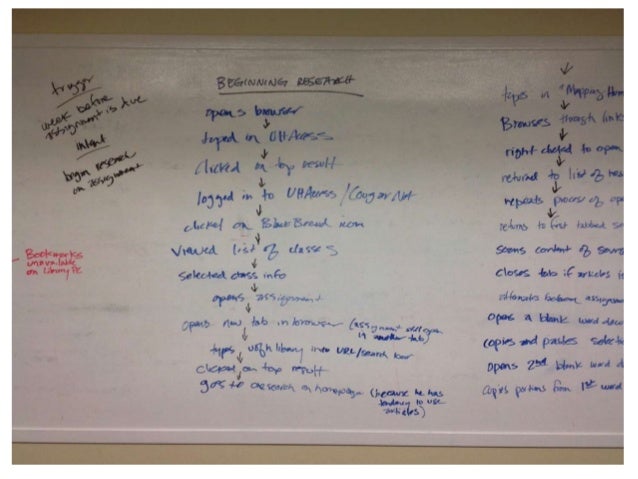 trigger
week before
assignment is due
intent
begin research
on assignment
Bookmarks
unavailable
on library PC
BEGINNING RESEARCH
opens browser
typed in UHAccess
clicked on top result
logged in to UHAccess/CougarNet
clicked on BlackBoard icon
viewed list of classes
selected class info
opens assignment
opens new tab in browser (assignment still open
in another tab)
types uofh library into URL/search bar
clicked on top result
goes to onesearch on homepage (because he has
tendency to use
articles)
types in "Mapping
Browses through link
right clicked to open
returned to list of
repeats process of
returns to first tabbed
scans content of
closes tab if articles
alternates between
opens a blank word
copies and pastes
opens 2nd blank word
copies portions from 1st word